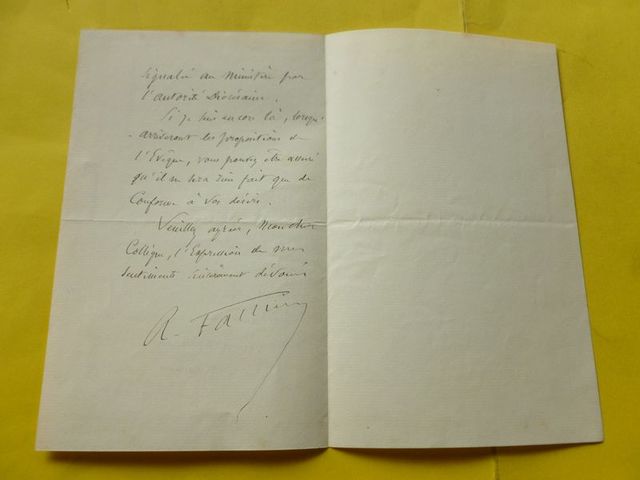 signalé au Ministère par
l'autorité Diocésaine.
Si je suis encore là, lorsqu'
arriveront les propositions de
l'Evêque, vous pouvez être assuré
qu'il ne sera rien fait que de
Conforme à vos désirs.
Veuillez agréer, Mon cher
Collègue, l'Expression de mes
Sentiments sincèrement dévoués
A. Fallières